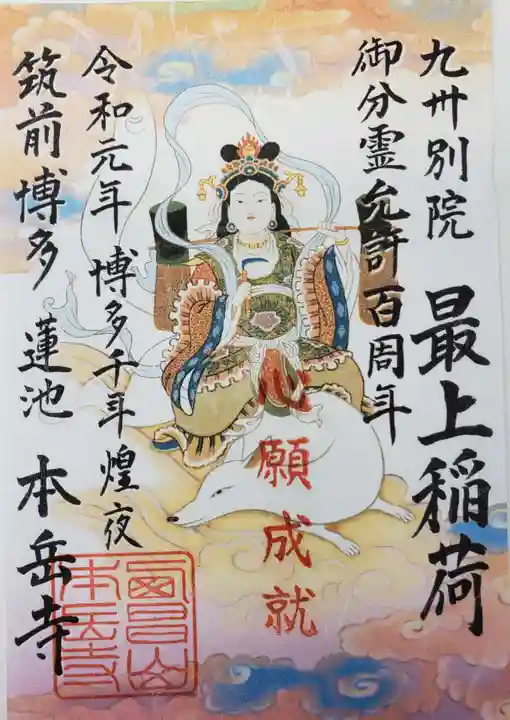 九州別院 最上稲荷
御分霊允許百周年
心願成就
令和元年 博多千年煌夜
筑前博多 蓮池 本岳寺